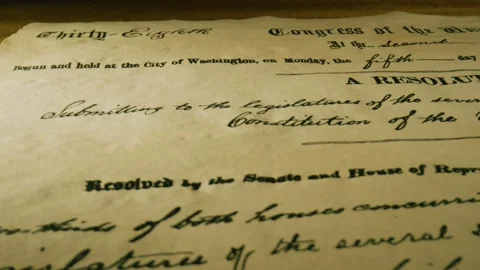 Thirty-Eighth Congress of the
At the second
Begun and held at the City of Washington, on Monday, the fifth day
A RESOLUT
Submitting to the legislatures of the seve
Constitution of the
Resolved by the Senate and House of Repr
o-thirds of both houses concurri
islatures of the several S